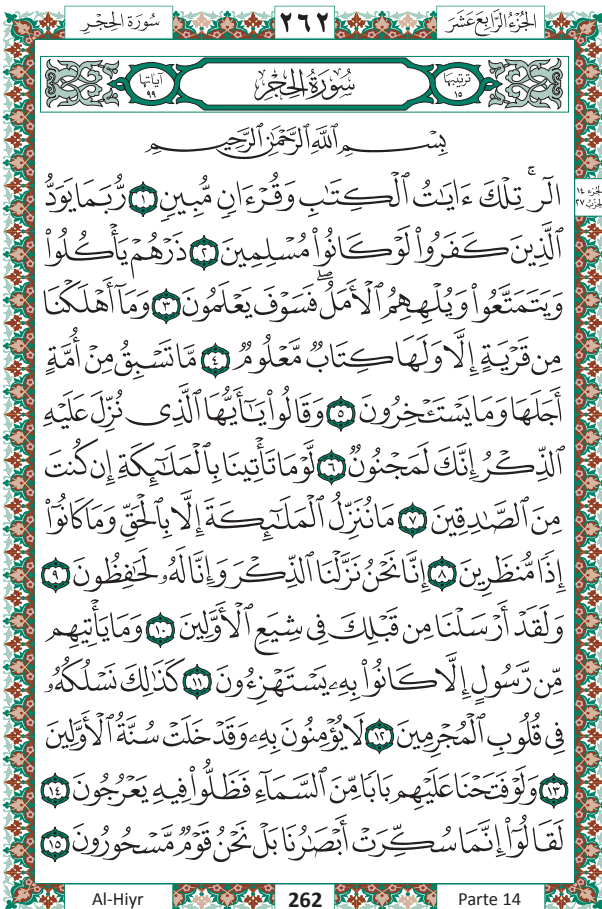 سُورَةُ الحِجْرِ ٢٦٢ الجُزْءُ الرَّابِعَ عَشَرَ
ترتيبها ١٥ سُورَةُ الحِجْرِ آياتها ٩٩
بِسْمِ ٱللَّهِ ٱلرَّحْمَٰنِ ٱلرَّحِيمِ
الٓرۚ تِلْكَ ءَايَٰتُ ٱلْكِتَٰبِ وَقُرْءَانٍ مُّبِينٍ ١ رُّبَمَا يَوَدُّ
الجزء ١٤
الحزب ٢٧
ٱلَّذِينَ كَفَرُوا۟ لَوْ كَانُوا۟ مُسْلِمِينَ ٢ ذَرْهُمْ يَأْكُلُوا۟
وَيَتَمَتَّعُوا۟ وَيُلْهِهِمُ ٱلْأَمَلُۖ فَسَوْفَ يَعْلَمُونَ ٣ وَمَآ أَهْلَكْنَا
مِن قَرْيَةٍ إِلَّا وَلَهَا كِتَابٌ مَّعْلُومٌ ٤ مَّا تَسْبِقُ مِنْ أُمَّةٍ
أَجَلَهَا وَمَا يَسْتَـْٔخِرُونَ ٥ وَقَالُوا۟ يَٰٓأَيُّهَا ٱلَّذِى نُزِّلَ عَلَيْهِ
ٱلذِّكْرُ إِنَّكَ لَمَجْنُونٌ ٦ لَّوْ مَا تَأْتِينَا بِٱلْمَلَٰٓئِكَةِ إِن كُنتَ
مِنَ ٱلصَّٰدِقِينَ ٧ مَا نُنَزِّلُ ٱلْمَلَٰٓئِكَةَ إِلَّا بِٱلْحَقِّ وَمَا كَانُوٓا۟
إِذًا مُّنظَرِينَ ٨ إِنَّا نَحْنُ نَزَّلْنَا ٱلذِّكْرَ وَإِنَّا لَهُۥ لَحَٰفِظُونَ ٩
وَلَقَدْ أَرْسَلْنَا مِن قَبْلِكَ فِى شِيَعِ ٱلْأَوَّلِينَ ١٠ وَمَا يَأْتِيهِم
مِّن رَّسُولٍ إِلَّا كَانُوا۟ بِهِۦ يَسْتَهْزِءُونَ ١١ كَذَٰلِكَ نَسْلُكُهُۥ
فِى قُلُوبِ ٱلْمُجْرِمِينَ ١٢ لَا يُؤْمِنُونَ بِهِۦ وَقَدْ خَلَتْ سُنَّةُ ٱلْأَوَّلِينَ
١٣ وَلَوْ فَتَحْنَا عَلَيْهِم بَابًا مِّنَ ٱلسَّمَآءِ فَظَلُّوا۟ فِيهِ يَعْرُجُونَ ١٤
لَقَالُوٓا۟ إِنَّمَا سُكِّرَتْ أَبْصَٰرُنَا بَلْ نَحْنُ قَوْمٌ مَّسْحُورُونَ ١٥
Al-Hiyr 262 Parte 14